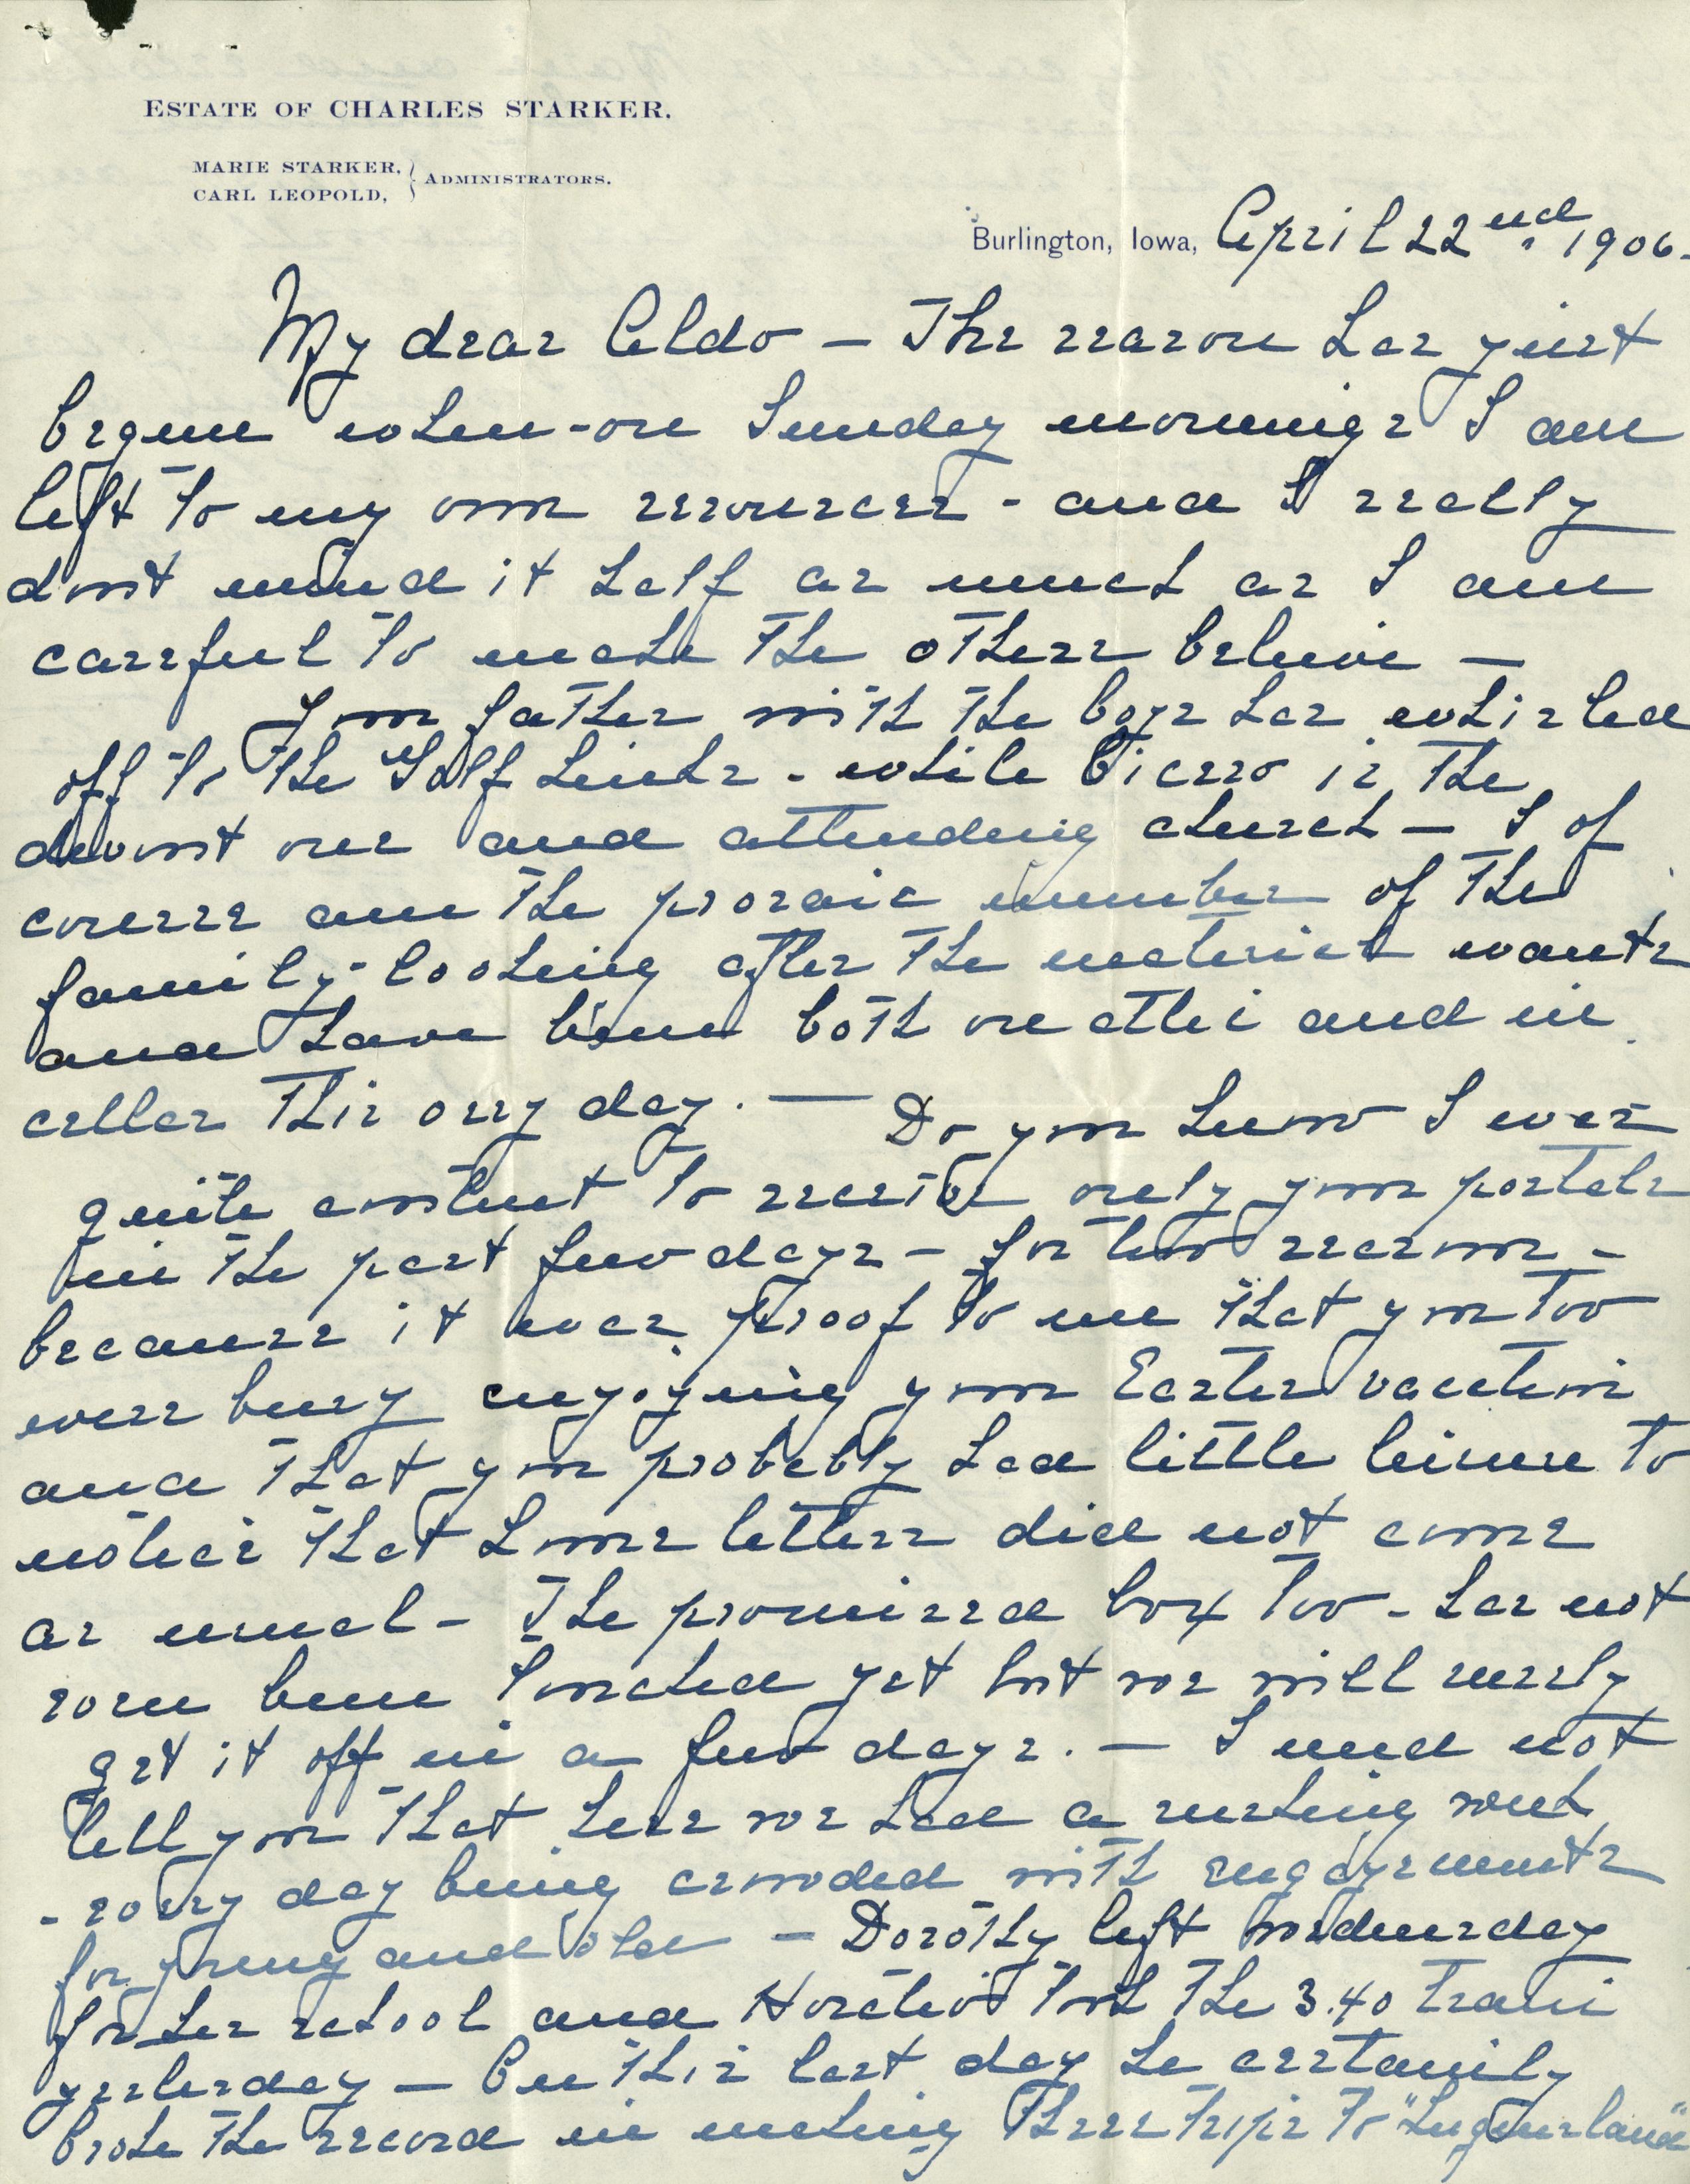 ESTATE OF CHARLES STARKER.
MARIE STARKER,
CARL LEOPOLD, } ADMINISTRATORS.
Burlington, Iowa, April 22nd. 1906.
My dear Aldo — The season has just
begun when - on Sunday mornings I am
left to my own resources - and I really
dont mind it half as much as I am
careful to make the others believe —
Your father with the boys has whirled
off to the Golf Links - while is the
devout one and attending church — I of
course am the prosaic member of the
family - looking after the material wants
and have been both on attic and in
cellar this very day. — Do you know I was
quite content to receive only your postals
in the past few days - for two reasons -
because it was proof to me that you too
were busy enjoying your Easter vacation
and that you probably had little leisure to
notice that home letters did not come
as usual - The promised box too - has not
even been touched yet but we will surely
get it off in a few days. — I need not
tell you that here we had a rushing week
- every day being crowded with engagements
for young and old — Dorothy left Wednesday
for her school and Horatio took the 3.40 train
yesterday — On this last day he certainly
broke the record in making three trips to "Lugerland"